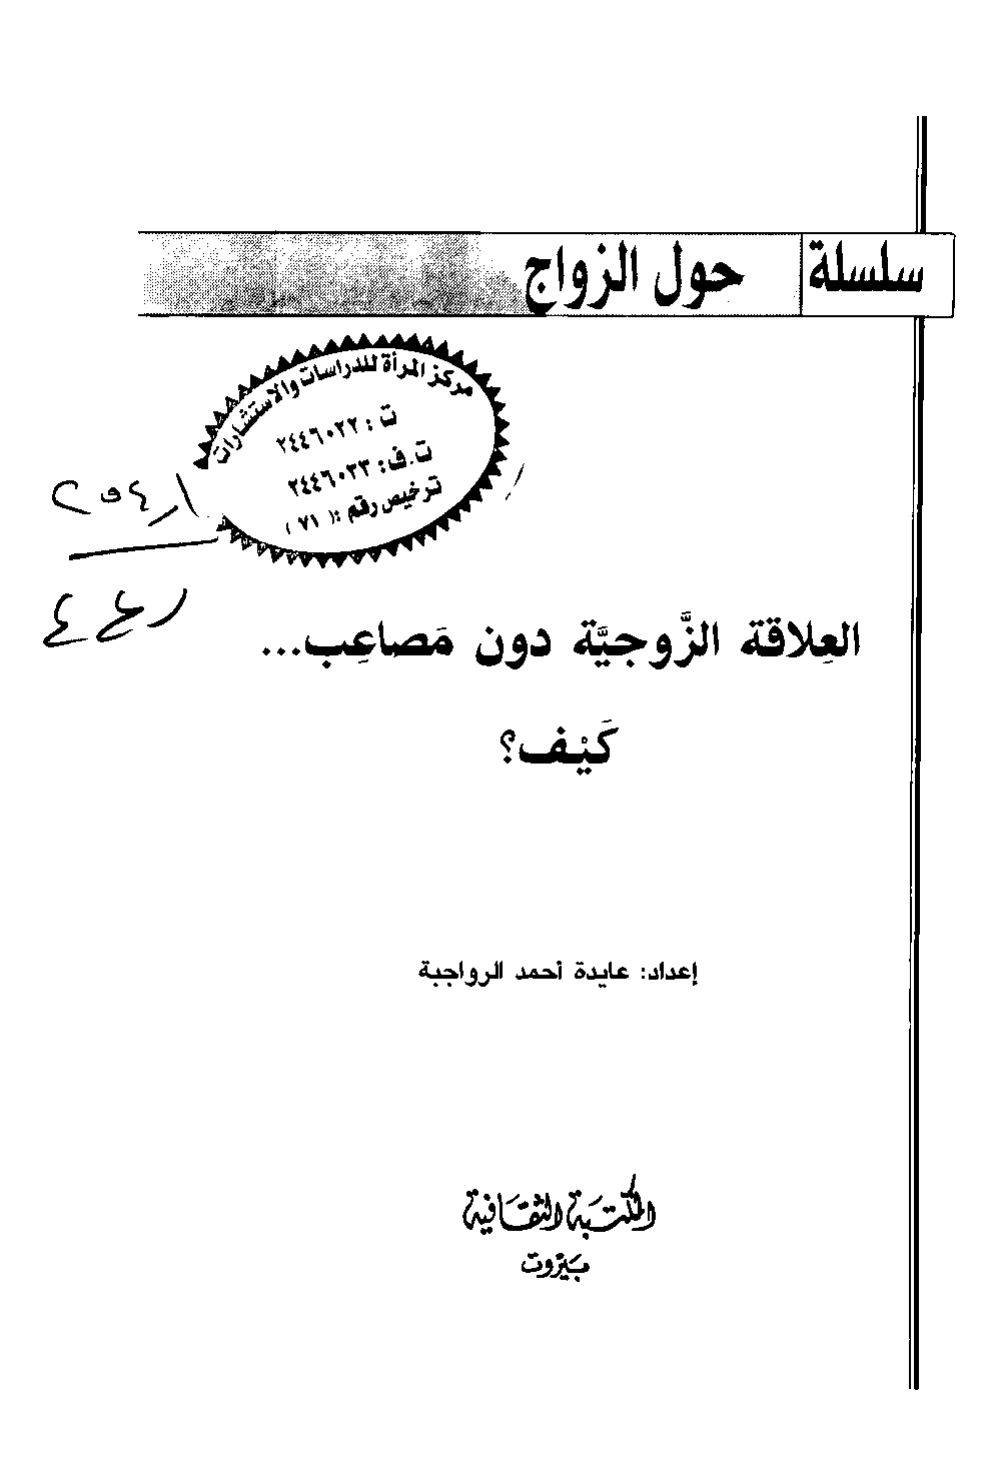 سلسلة حول الزواج
مركز المرأة للدراسات والاستشارات
ت : ٢٤٤٦٠٢٢
ت.ف: ٢٤٤٦٠٣٣
ترخيص رقم : ( ٧١ )
العِلاقة الزَّوجيَّة دون مَصاعِب...
كَيْف؟
إعداد: عايدة أحمد الرواجبة
المكتبة الثقافية
بيروت